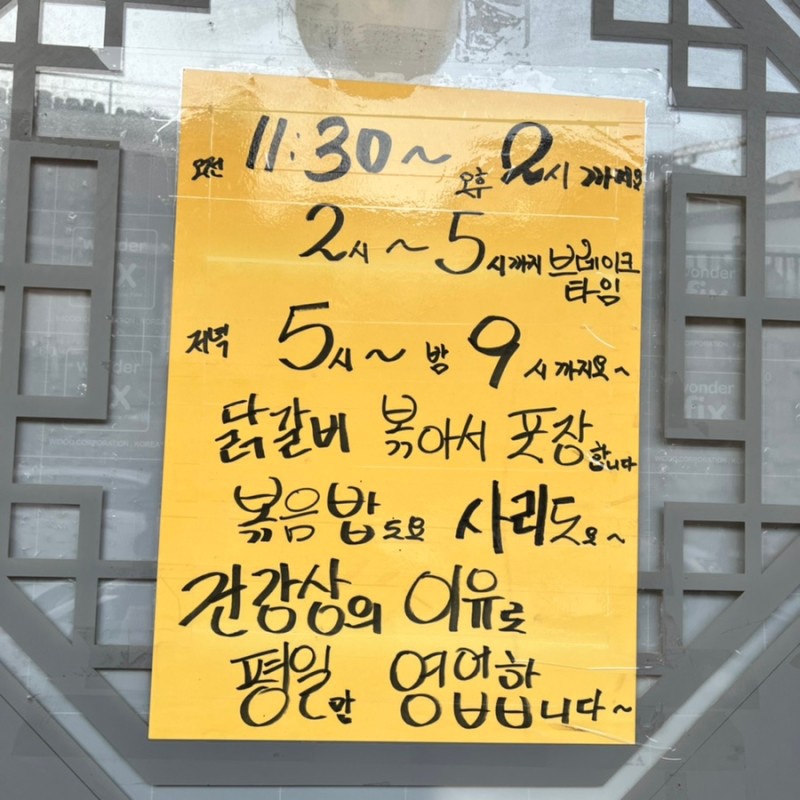 오전 11:30~ 오후 2시 까지요
2시 ~ 5시까지 브레이크
타임
저녁 5시~ 밤 9시 까지요~
닭갈비 볶아서 포장합니다
볶음밥도요 사리도요~
건강상의 이유로
평일만 영업합니다~
wonder
fix
wonder
fix